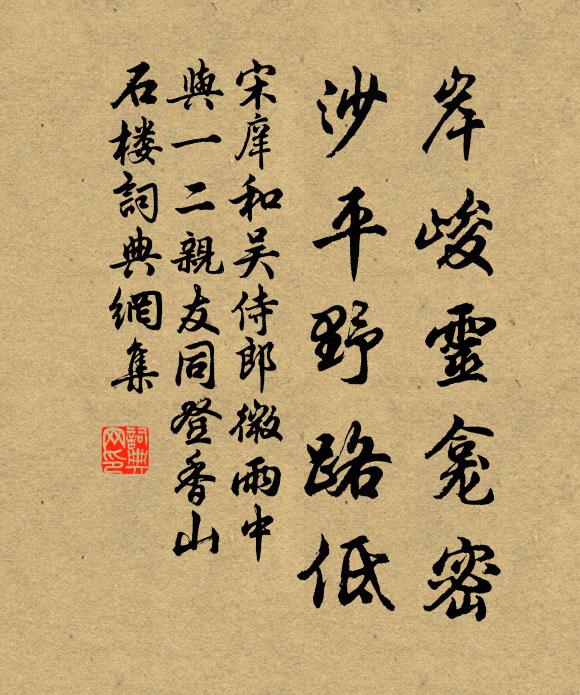 岸峻靈龛密
沙平野路低
宋庠和吴侍郎微雨中
與一二親友同登香山
石楼詞典網集
詞典
网印